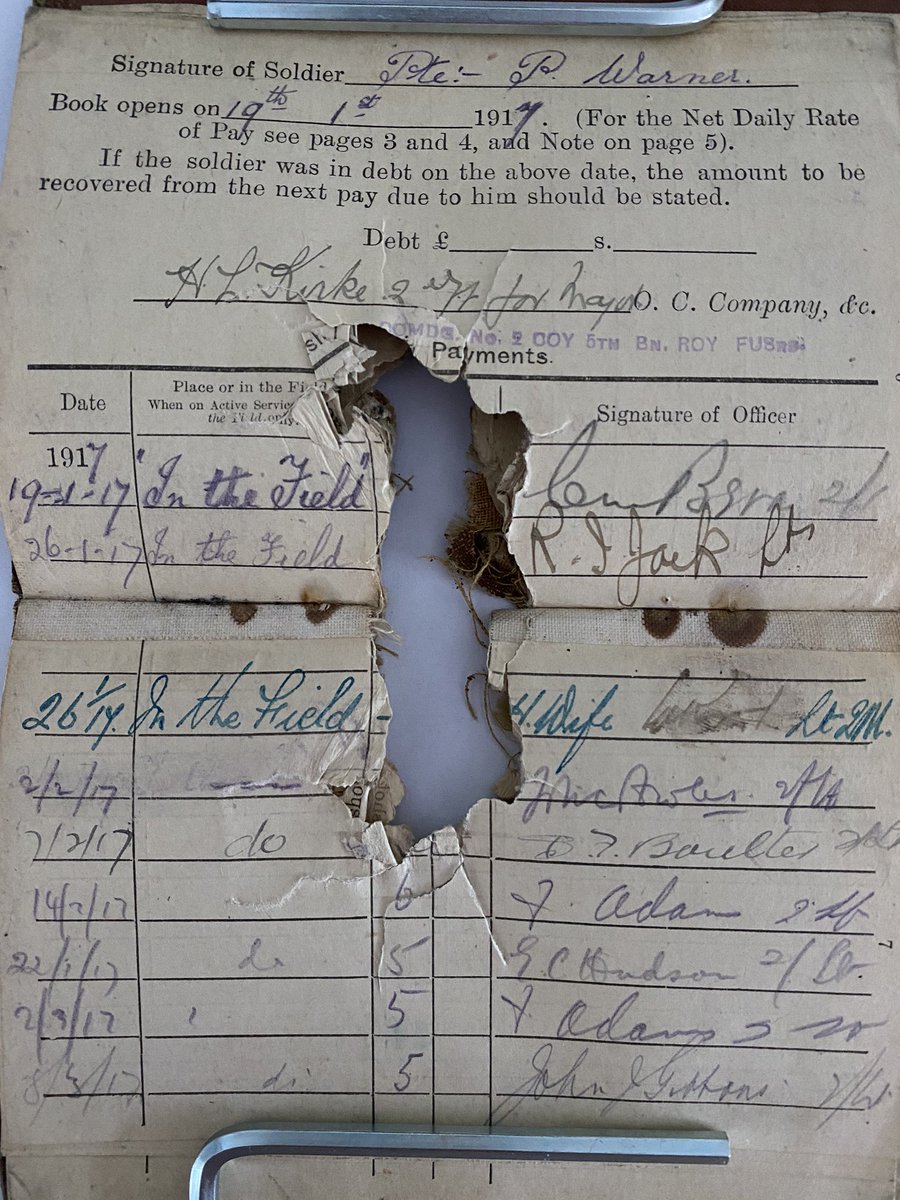 Signature of Soldier Pte:- P. Warner.
Book opens on 19th 1st 1917. (For the Net Daily Rate
of Pay see pages 3 and 4, and Note on page 5).
If the soldier was in debt on the above date, the amount to be
recovered from the next pay due to him should be stated.
Debt £ s.
H L Kirke 2 Lt for Major O. C. Company, &c.
COMDG. No. 2 COY 5TH BN. ROY FUSRS.
Payments.
Date
Place or in the Fi
When on Active Servic
the Field only.
Signature of Officer
1917
19-1-17 "In the Field"
26-1-17 In the Field R. I Jack Lt
26/1/17. In the Field - H. Wife Lt QM.
2/2/17 2/Lt
7/2/17 do Boulter 2/Lt
14/2/17 6 F. Adams 2 Lt
22/1/17 do 5 E C Hudson 2/Lt.
2/3/17 5 F Adams 2
8/3/17 do 5 John J Gibbons. 2/Lt
7